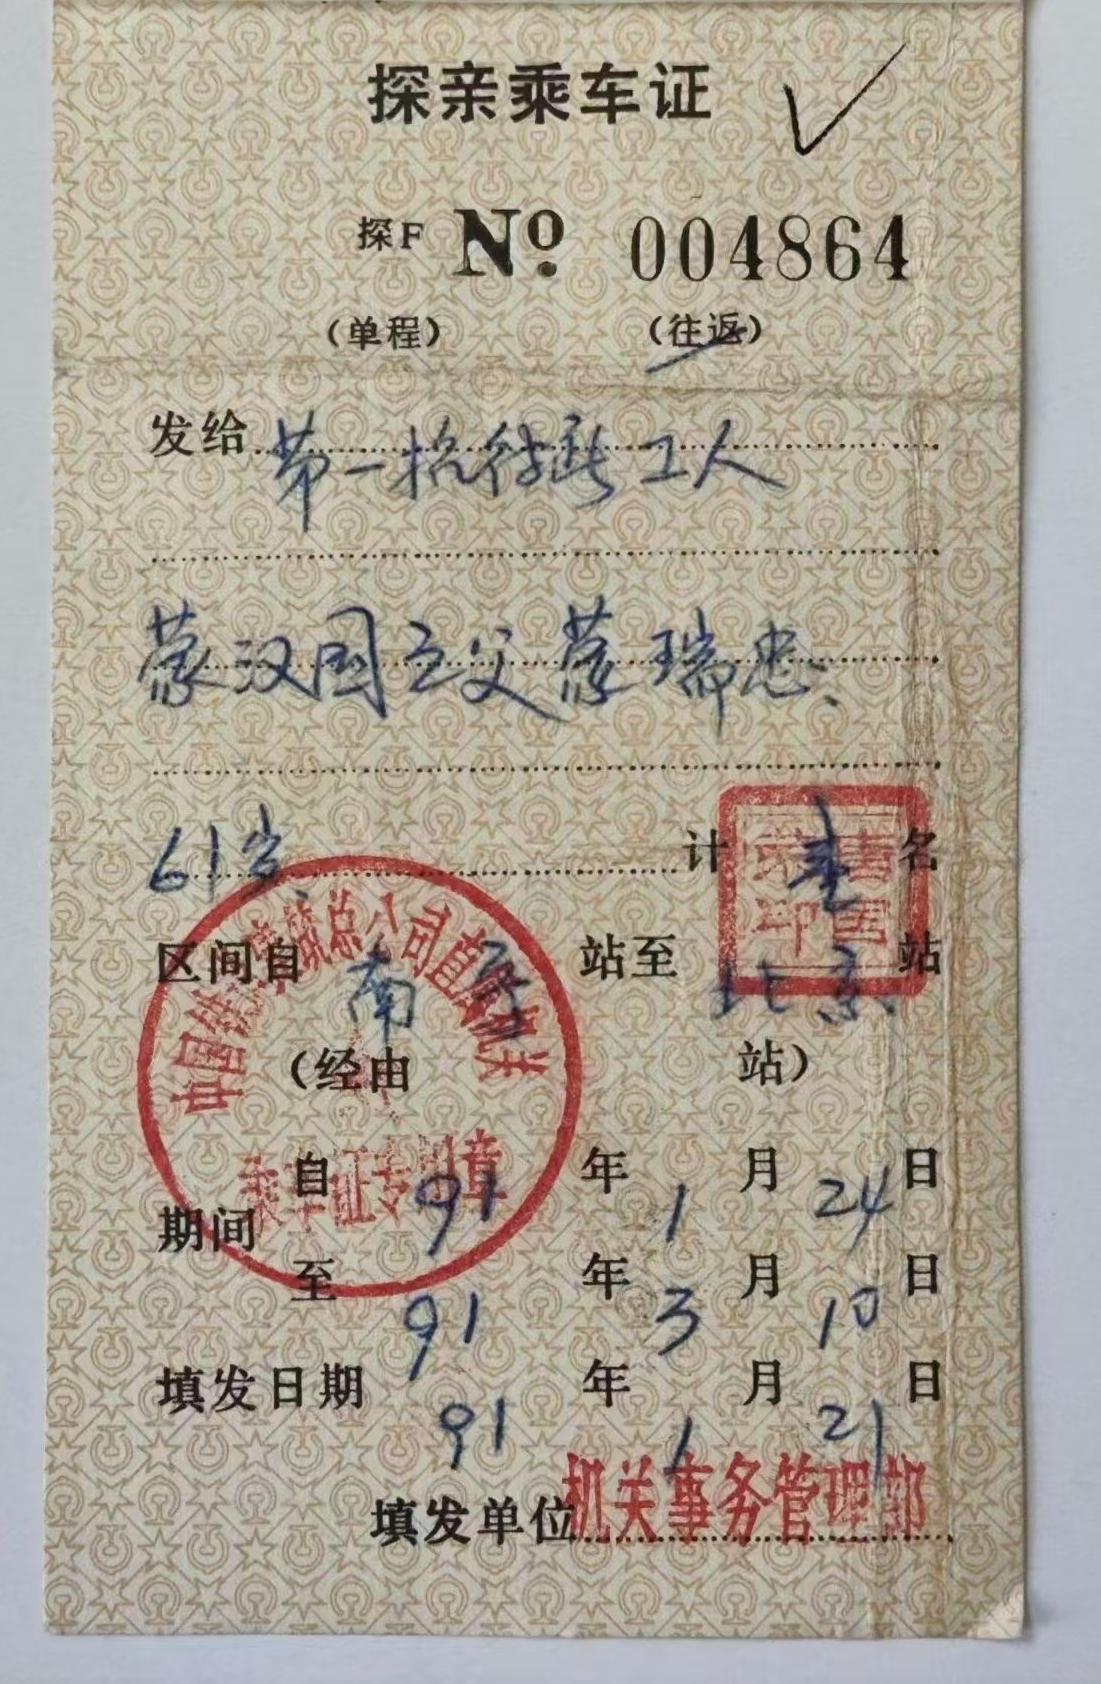 探亲乘车证
探F № 004864
(单程) (往返)
发给 第一招待所工人
蒙汉国之父蒙瑞忠、
61岁、 计 壹 名
区间自 南 站至 北京 站
(经由 站)
期间 自 91 年 1 月 24 日
至 91 年 3 月 10 日
填发日期 91 年 1 月 21 日
填发单位 机关事务管理部
中国铁路建筑总公司直属机关
乘车证专用章